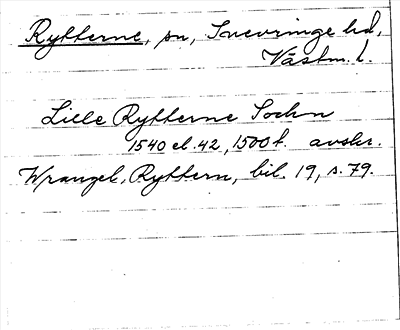 Rytterne, sn, Snevringe hd,
Västm. l.
Lille Rytterne Sochn
1540 el. 42, 1500 t. avskr.
Wrangel, Ryttern, bil. 19, s. 79.